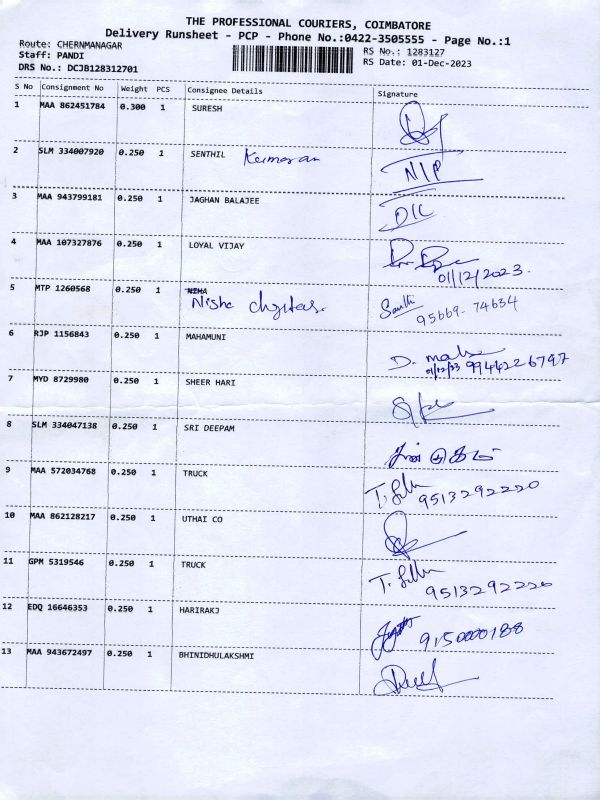 THE PROFESSIONAL COURIERS, COIMBATORE
Delivery Runsheet - PCP - Phone No.:0422-3505555 - Page No.:1
Route: CHERNMANAGAR
RS No.: 1283127
Staff: PANDI
RS Date: 01-Dec-2023
DRS No.: DCJB128312701
S No Consignment No Weight PCS Consignee Details Signature
1 MAA 862451784 0.300 1 SURESH
2 SLM 334007920 0.250 1 SENTHIL Kumaran N/P
3 MAA 943799181 0.250 1 JAGHAN BALAJEE D/C
4 MAA 107327876 0.250 1 LOYAL VIJAY
01/12/2023.
5 MTP 1260568 0.250 1 NIHA
Nisha
95669-74634
6 RJP 1156843 0.250 1 MAHAMUNI
01/12/23 9944226797
7 MYD 8729980 0.250 1 SHEER HARI
8 SLM 334047138 0.250 1 SRI DEEPAM
9 MAA 572034768 0.250 1 TRUCK
9513292220
10 MAA 862128217 0.250 1 UTHAI CO
11 GPM 5319546 0.250 1 TRUCK
9513292220
12 EDQ 16646353 0.250 1 HARIRAKJ
9150000188
13 MAA 943672497 0.250 1 BHINIDHULAKSHMI